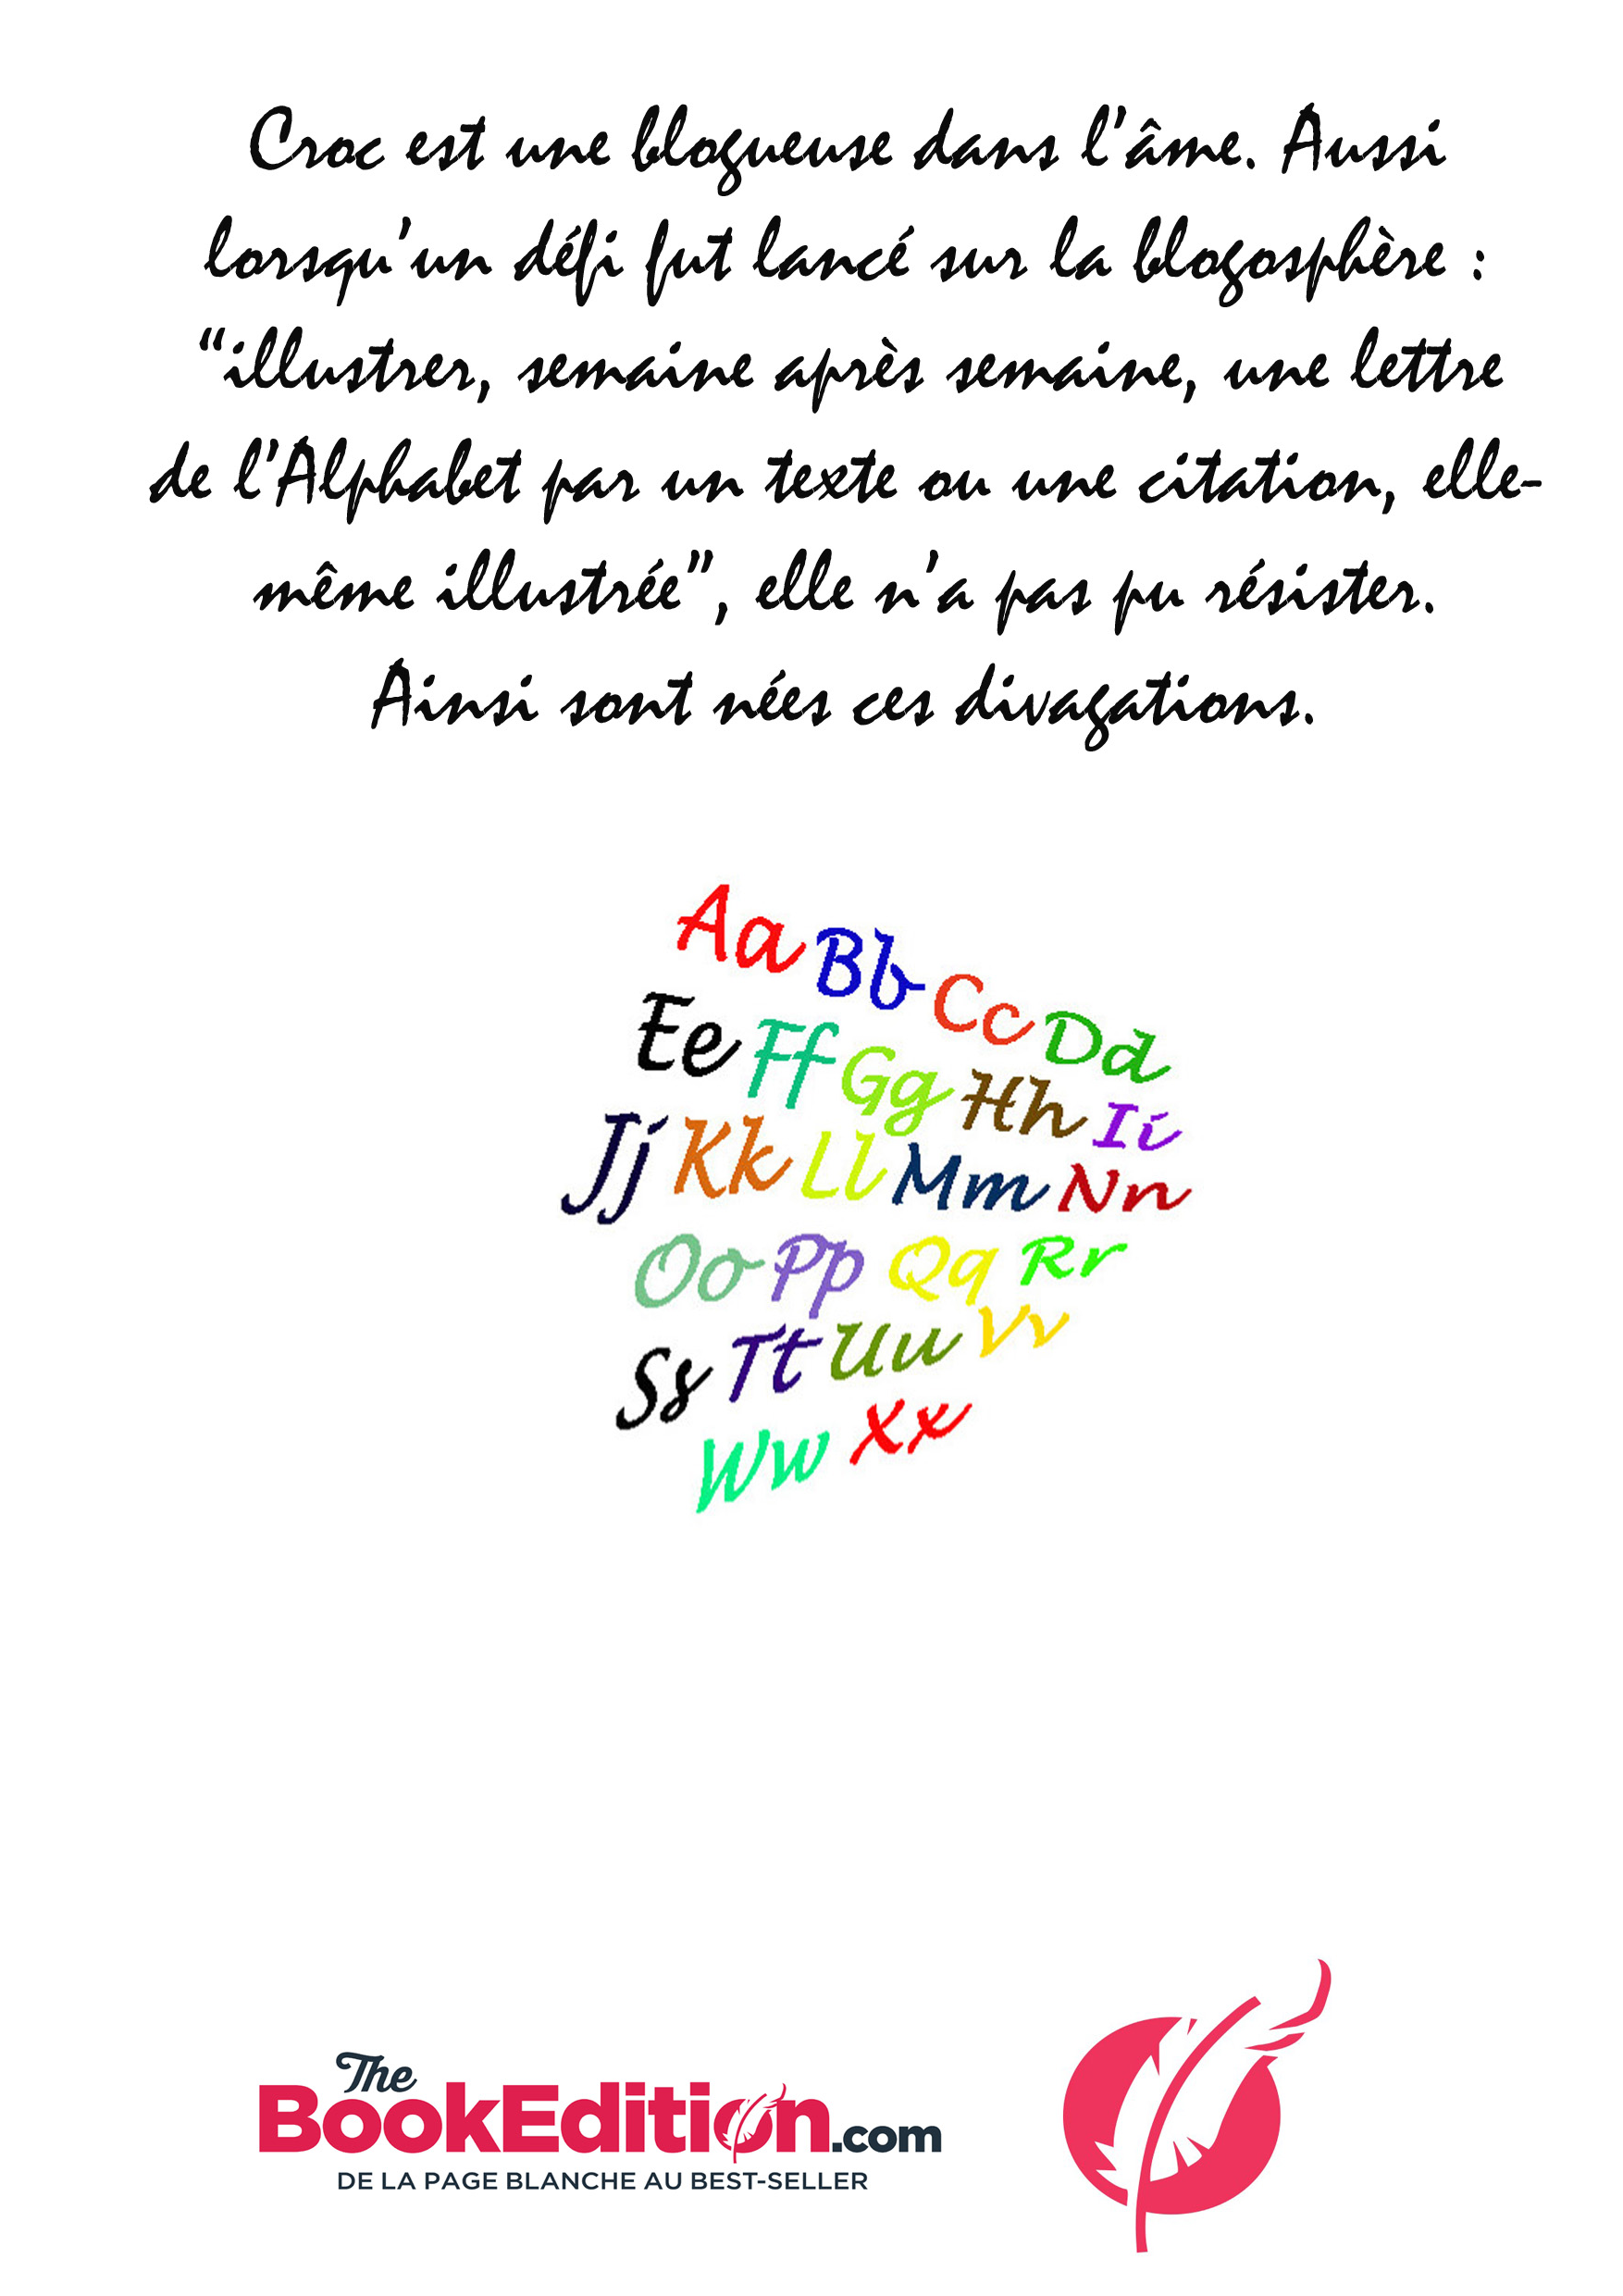 Croc est une blogueuse dans l’âme. Aussi
lorsqu’un défi fut lancé sur la blogosphère :
“illustrer, semaine après semaine, une lettre
de l’Alphabet par un texte ou une citation, elle-
même illustrée”, elle n’a pas pu résister.
Ainsi sont nées ces divagations.
Aa Bb Cc Dd
Ee Ff Gg Hh Ii
Jj Kk Ll Mm Nn
Oo Pp Qq Rr
Ss Tt Uu Vv
Ww Xx
The
BookEdition.com
DE LA PAGE BLANCHE AU BEST-SELLER